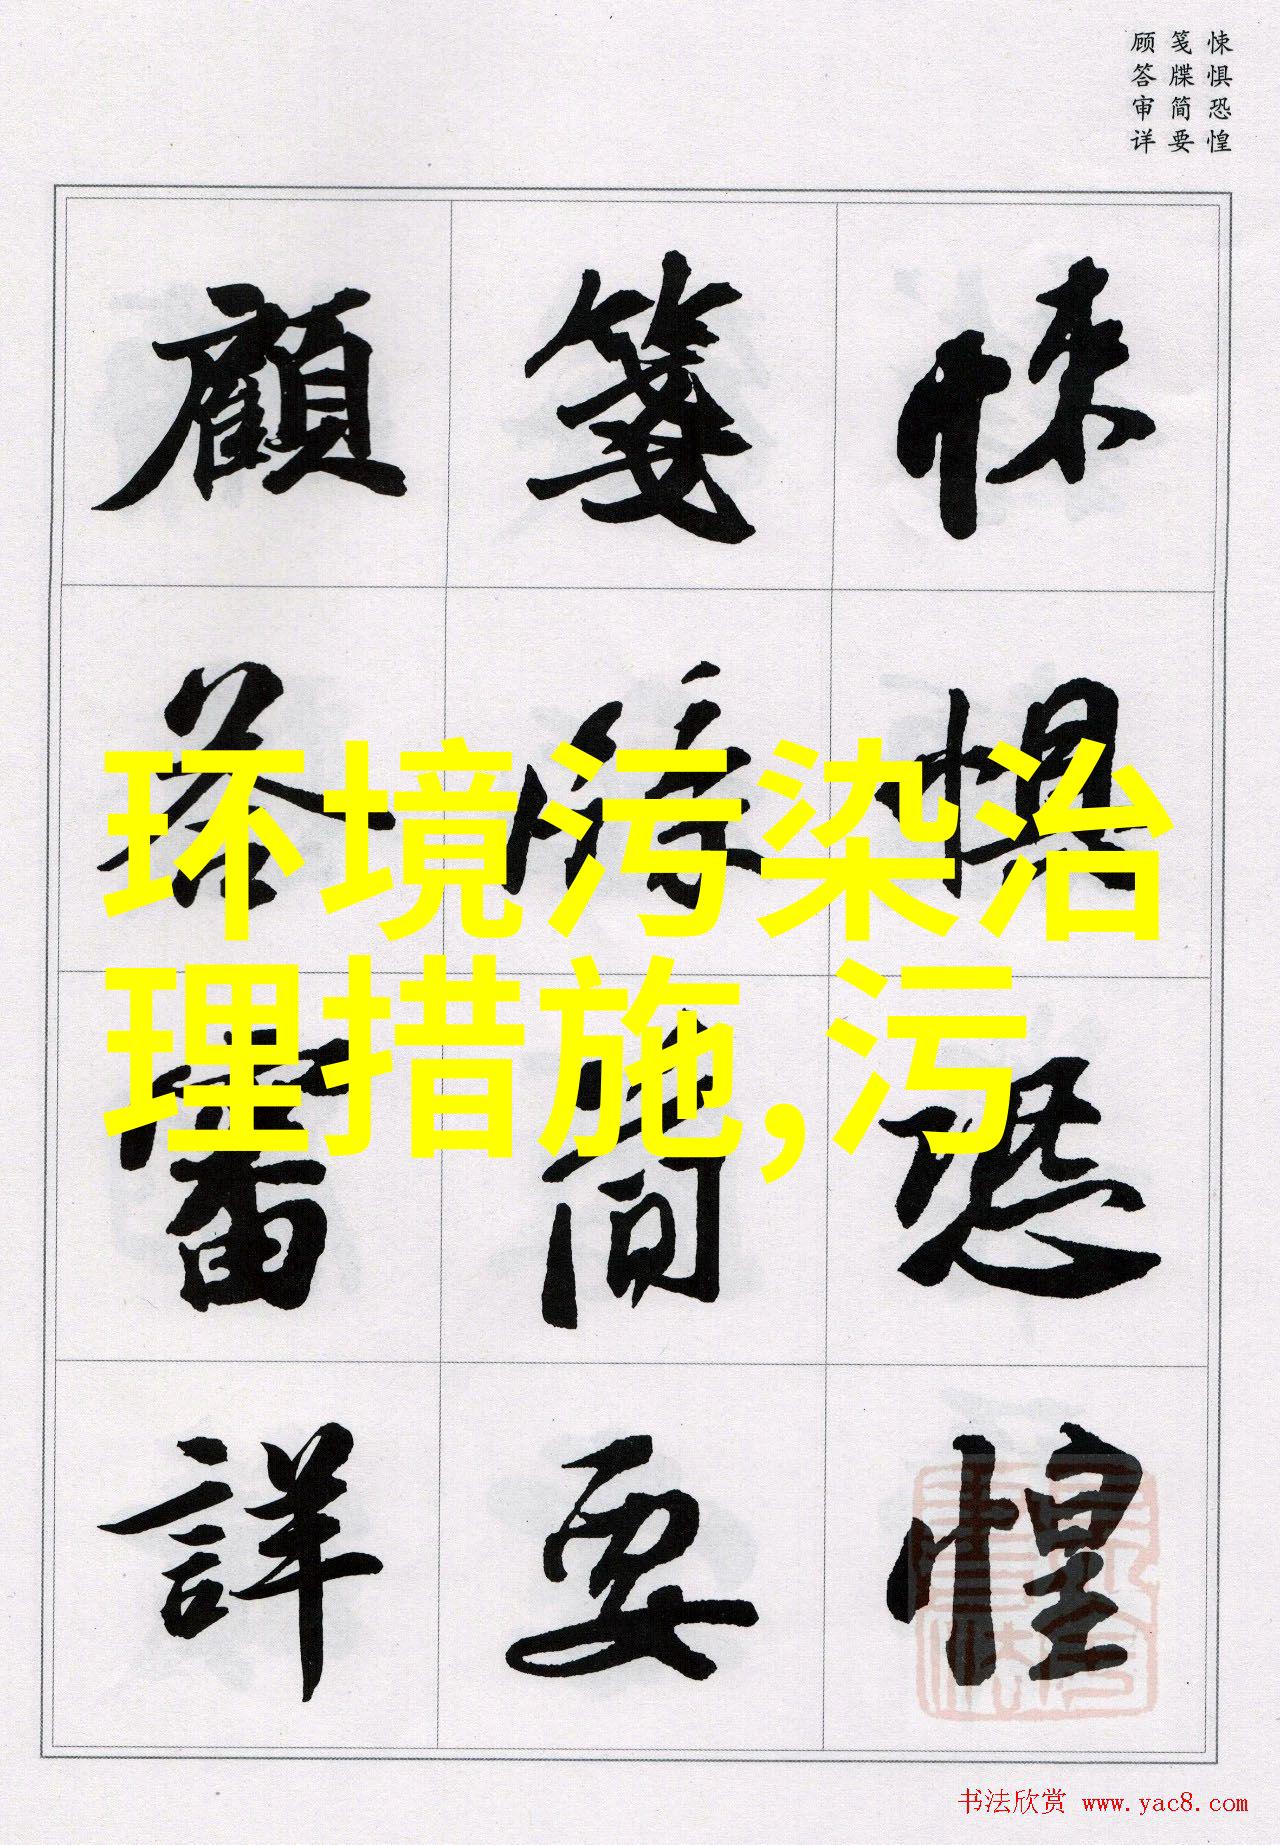 悚惧恐惶
笺牒简要
顾答审详
悚惧恐惶
笺牒简要
顧答審詳
环境污染治
理措施,污
书法欣赏 www.yac8.com